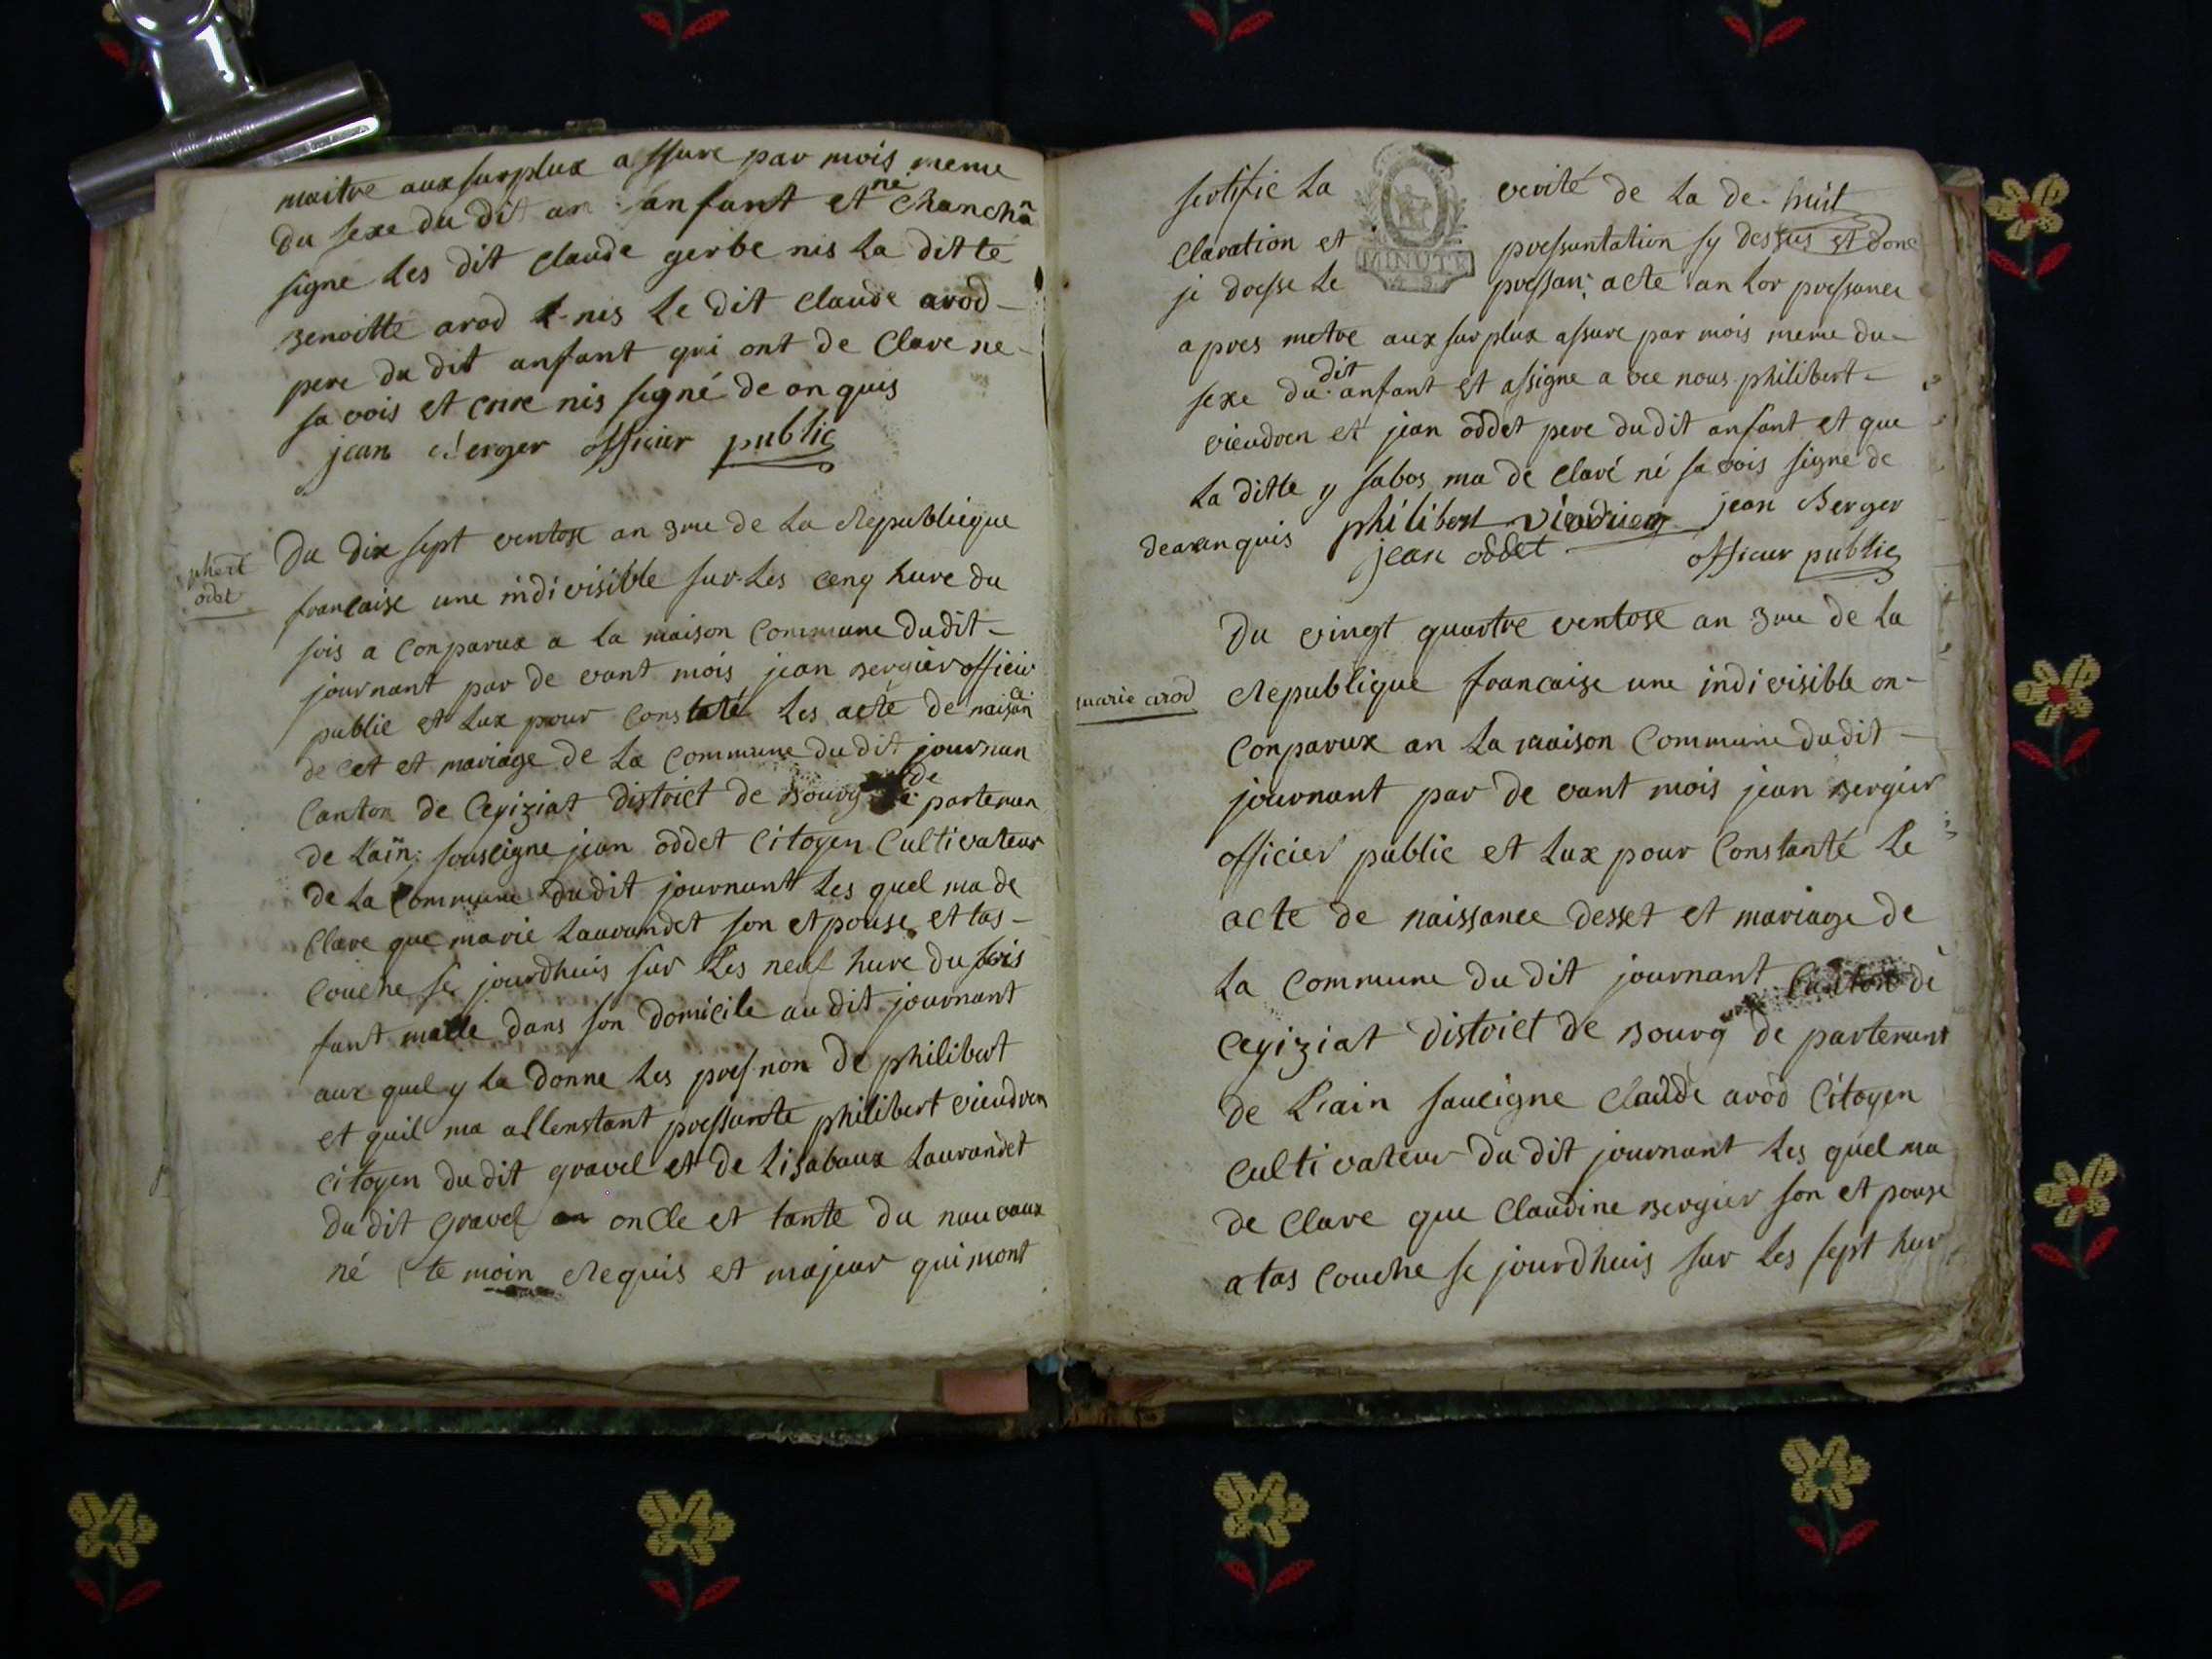 maitre aux surplux assure par mois meme
du sexe du dit an anfant et ne chanchã
signe les dit Claude gerbe nis la ditte
Benoitte arod nis le dit Claude arod
pere du dit anfant qui ont de Clare ne
sa vois et crire nis signé de on quis
jean Berger officier public
phert
odet
Du dix sept ventose an 3me de la Republique
francaise une indivisible sur les cenq hure du
sois a Conparux a la maison Commune dudit
journant par de vant mois jean Bergier officir
public et Lux pour Constaté les acte de naisan
de cet et mariage de la Commune du dit journan
Canton de Ceyiziat district de Bourg de parteman
de Lain; souseigne jean oddet Citoyen Cultivateur
de la Commune du dit journant Les quel ma de
Clare que marie Lauvandet son et pouse et tas
Couche se jourdhuis sur Les neuf hure du sois
fant malle dans son domicile au dit journant
aux quel y la donne Les pres non de philibert
et quil ma allenstant pressante philibert vieudren
Citoyen du dit gravel et de Lisabaux Lauvandet
du dit gravel oncle et tante du nauvaux
né te moin Requis et majeur qui mont
sertifie La verité de La de huit
Claration et pressantation sy dessus et donc
je dresse Le pressan; acte an Lor pressance
MINUTE
apres metre aux surplux assure par mois meme du
sexe du dit anfant et assigne a vec nous philibert
vieudren et jean oddet pere du dit anfant et que
La ditte y sabos ma de Claré né sa vois signe de
de aranquis philibert vieudren jean Berger
jean oddet officier public
marie arod
Du vingt quartre ventose an 3me de la
Republique francaise une indivisible on
Conparux an La maison Commune dudit
journant par de vant mois jean Bergier
officier public et Lux pour Constanté Le
acte de naissance desset et mariage de
La Commune du dit journant Canton de
Ceyiziat district de Bourg de partemant
de L'ain souseigne Claude arod Citoyen
Cultivateur du dit journant Les quel ma
de Clare que Claudine Bergier son et pouse
a tas Couche se jourdhuis sur Les sept hur